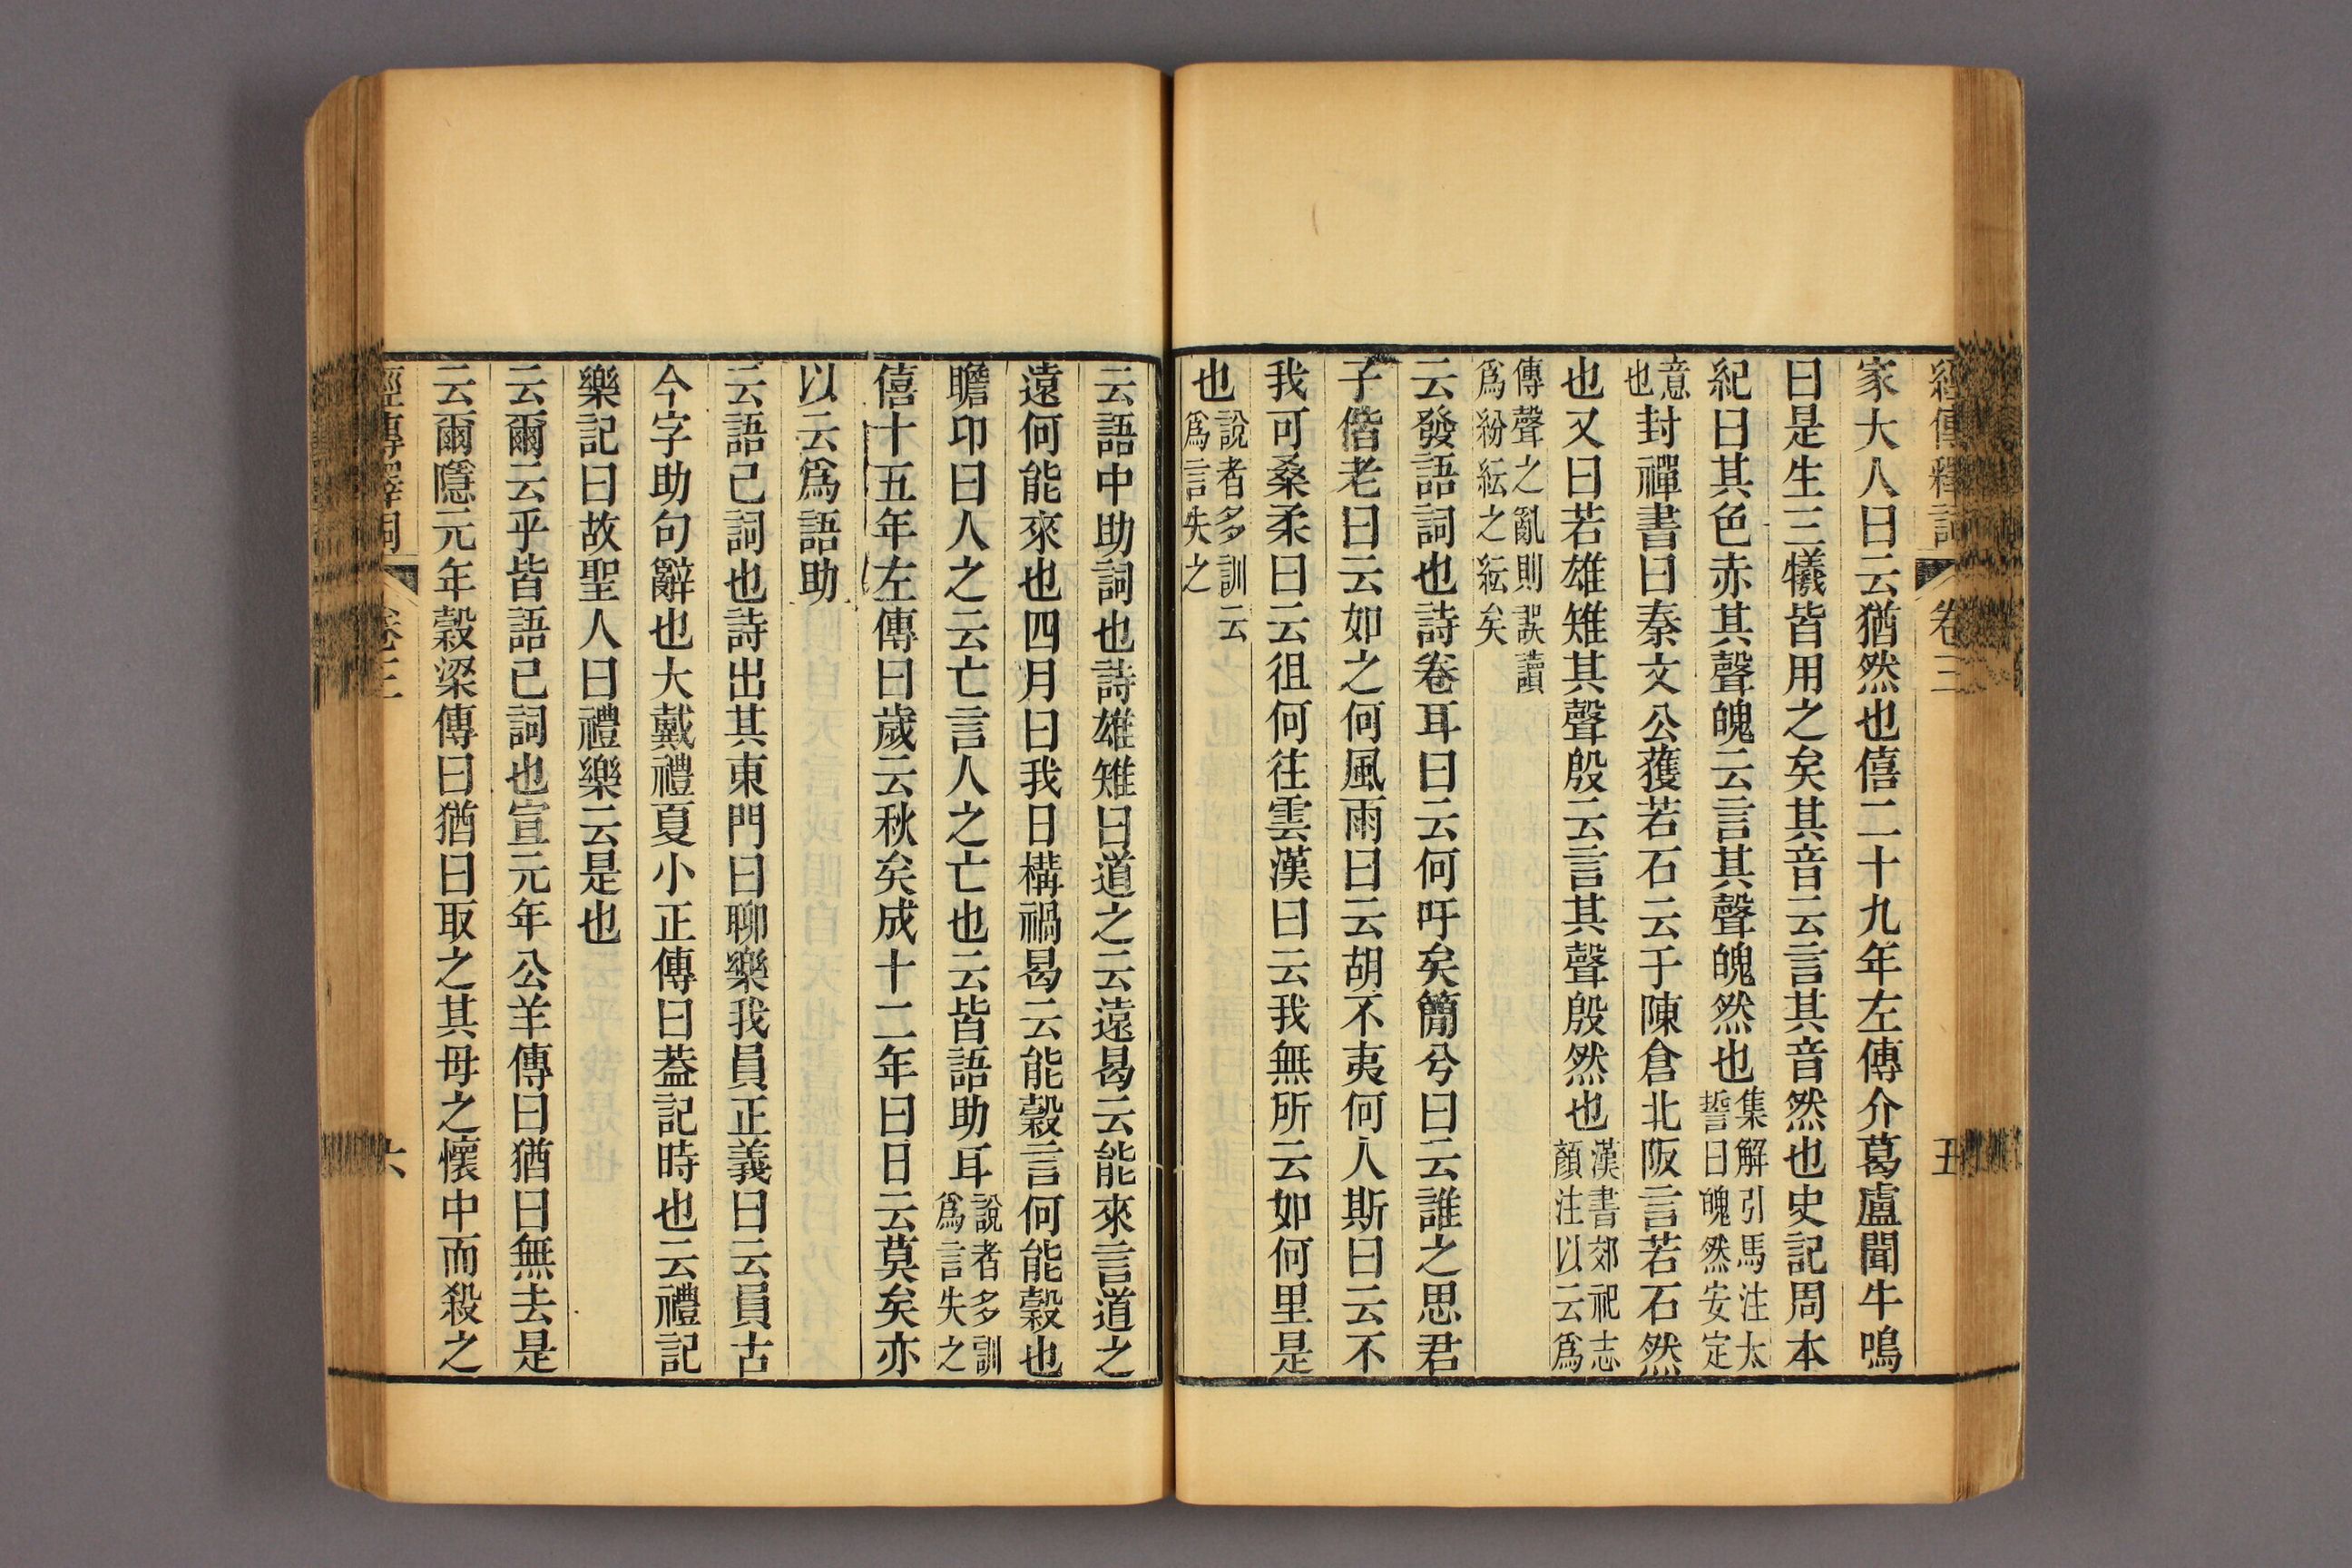 經傳釋詞 卷三 五
家大人曰云猶然也僖二十九年左傳介葛盧聞牛鳴
曰是生三犧皆用之矣其音云言其音然也史記周本
紀曰其色赤其聲魄云言其聲魄然也集解引馬注太誓曰魄然安定
意也封禪書曰秦文公獲若石云于陳倉北阪言若石然
也又曰若雄雉其聲殷云言其聲殷然也漢書郊祀志顏注以云爲
傳聲之亂則誤讀爲紛紜之紜矣
云發語詞也詩卷耳曰云何吁矣簡兮曰云誰之思君
子偕老曰云如之何風雨曰云胡不夷何人斯曰云不
我可桑柔曰云徂何往雲漢曰云我無所云如何里是
也說者多訓云爲言失之
云語中助詞也詩雄雉曰道之云遠曷云能來言道之
遠何能來也四月曰我日構禍曷云能穀言何能穀也
瞻卬曰人之云亡言人之亡也云皆語助耳說者多訓爲言失之
僖十五年左傳曰歲云秋矣成十二年曰日云莫矣亦
以云爲語助
云語已詞也詩出其東門曰聊樂我員正義曰云員古
今字助句辭也大戴禮夏小正傳曰蓋記時也云禮記
樂記曰故聖人曰禮樂云是也
云爾云乎皆語已詞也宣元年公羊傳曰猶曰無去是
云爾隱元年穀梁傳曰猶曰取之其母之懷中而殺之
經傳釋詞 卷三 六